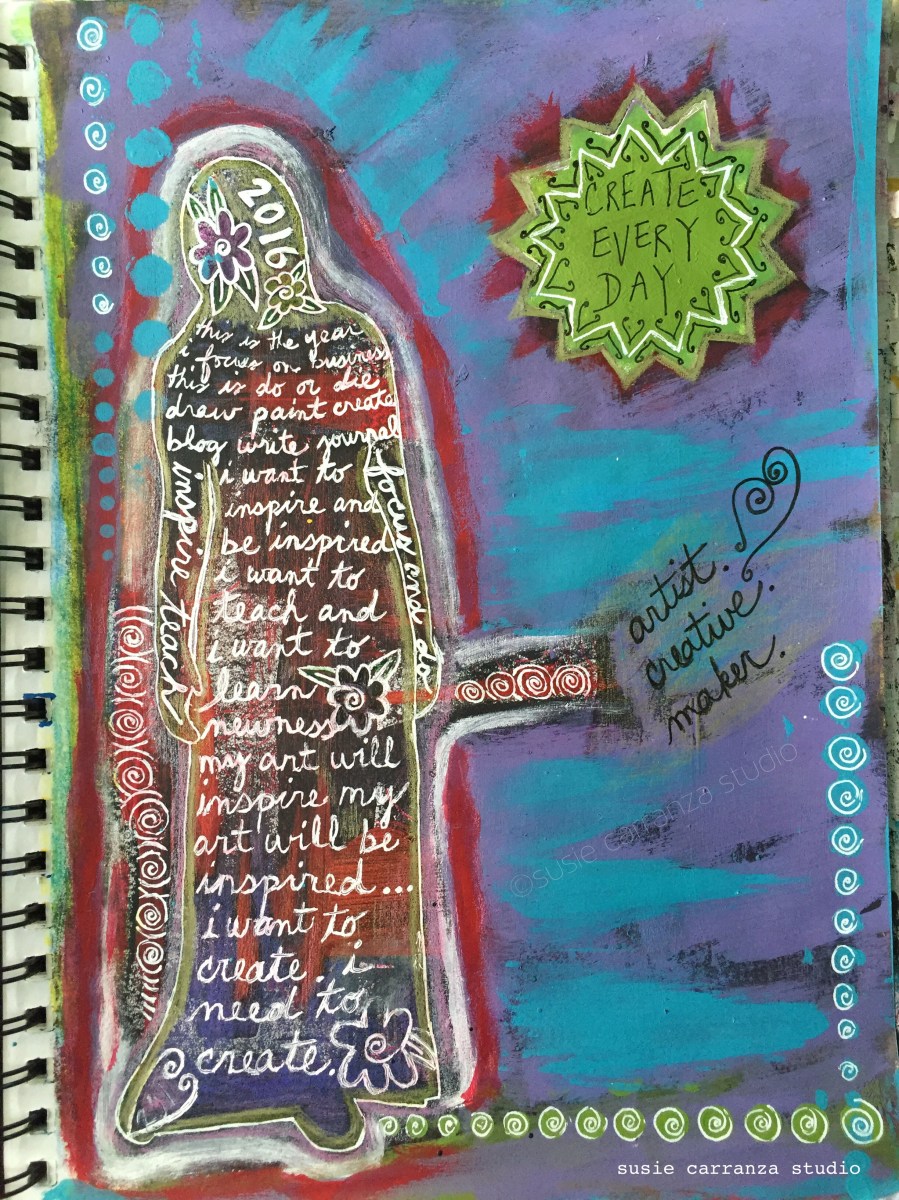 2016
CREATE
EVERY
DAY
this is the year
i focus on business
this is do or die
draw paint create
blog write journal
i want to
inspire and
be inspired
i want to
teach and
i want to
learn
newness
my art will
inspire my
art will be
inspired...
i want to
create. i
need to
create.
inspire teach
focus and do
artist.
creative.
maker.
©susie carranza studio
susie carranza studio